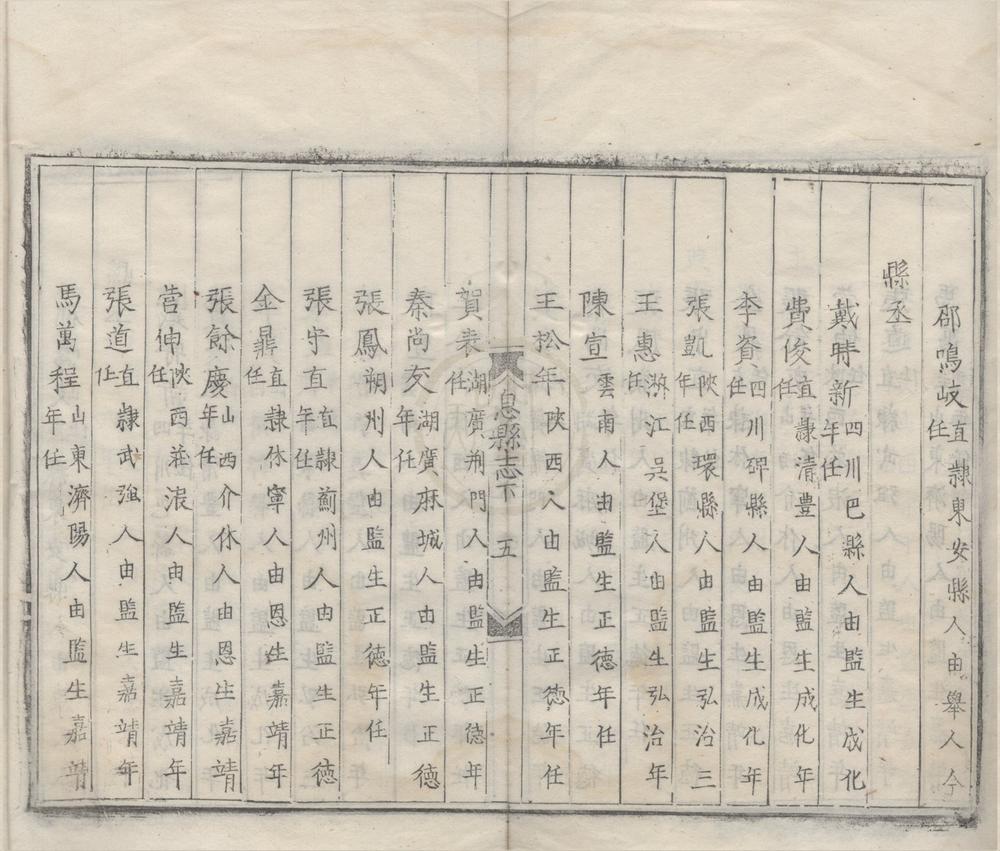 邵鳴岐直隸東安縣人由舉人今任
縣丞
戴時新四川巴縣人由監生成化年任
費俊直隸清豊人由監生成化年任
李資四川碑縣人由監生成化年任
張凱陜西環縣人由監生弘治三年任
王惠浙江吳堡人由監生弘治年任
陳宣雲南人由監生正德年任
王松年陜西人由監生正德年任
息縣志下 五
賀表湖廣朔門人由監生正德年任
秦尚友湖廣麻城人由監生正德年任
張鳳朔州人由監生正德年任
張守直直隸薊州人由監生正德年任
金鼎直隸休寧人由恩生嘉靖年任
張餘慶山西介休人由恩生嘉靖年任
营伸陜西莊浪人由監生嘉靖年任
張道直隸武強人由監生嘉靖年任
馬萬程山東濟陽人由監生嘉靖年任